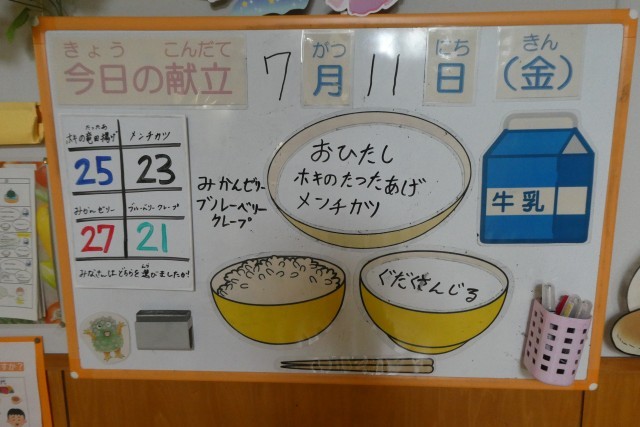 きょう こんだて
今日の献立
7 がつ
月
11 にち
日
きん
(金)
たつたあ
ホキの竜田揚げ メンチカツ
25 23
みかんゼリー ブルーベリークレープ
27 21
みなさんは どちらを 選びましたか!
みかんゼリー
ブルーベリー
クレープ
おひたし
ホキのたつたあげ
メンチカツ
牛乳
ぐだくさんじる